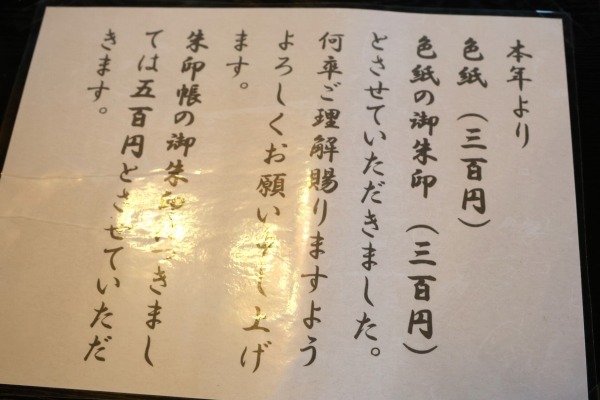 本年より
色紙（三百円）
色紙の御朱印（三百円）
とさせていただきました。
何卒ご理解賜りますよう
よろしくお願い申し上げ
ます。
朱印帳の御朱印につきまし
ては五百円とさせていただ
きます。